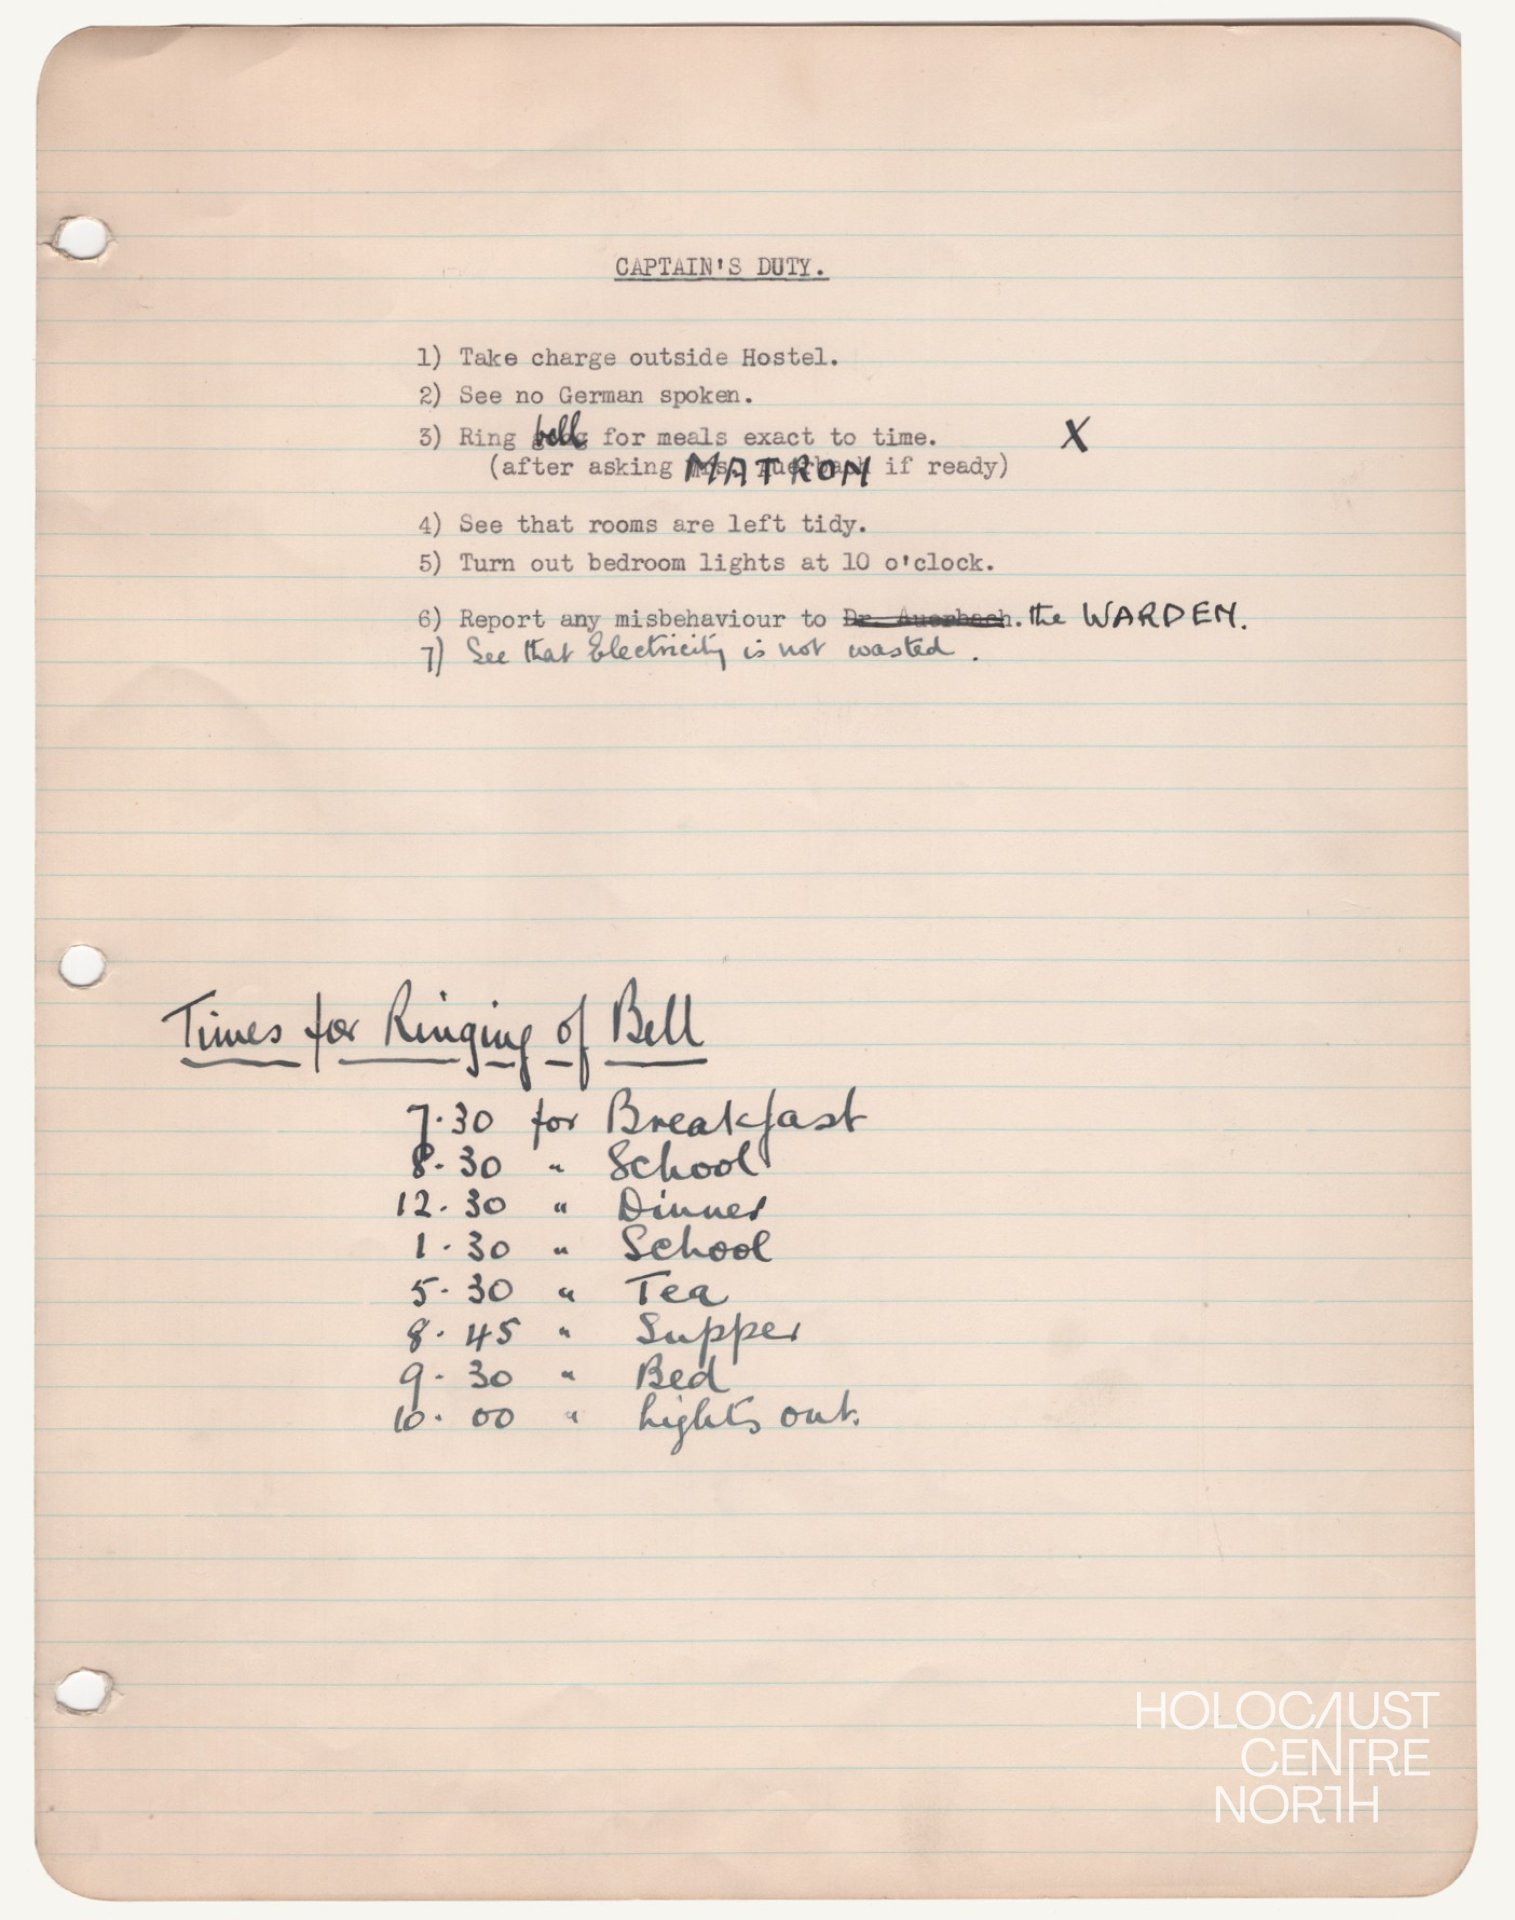 CAPTAIN'S DUTY.
1) Take charge outside Hostel.
2) See no German spoken.
3) Ring bell for meals exact to time. X
(after asking MATRON if ready)
4) See that rooms are left tidy.
5) Turn out bedroom lights at 10 o'clock.
6) Report any misbehaviour to Dr. Auerbach. the WARDEN.
7) See that Electricity is not wasted.
Times for Ringing of Bell
7.30 for Breakfast
8.30 " School
12.30 " Dinner
1.30 " School
5.30 " Tea
8.45 " Supper
9.30 " Bed
10.00 " Lights out.
HOLOCAUST
CENTRE
NORTH